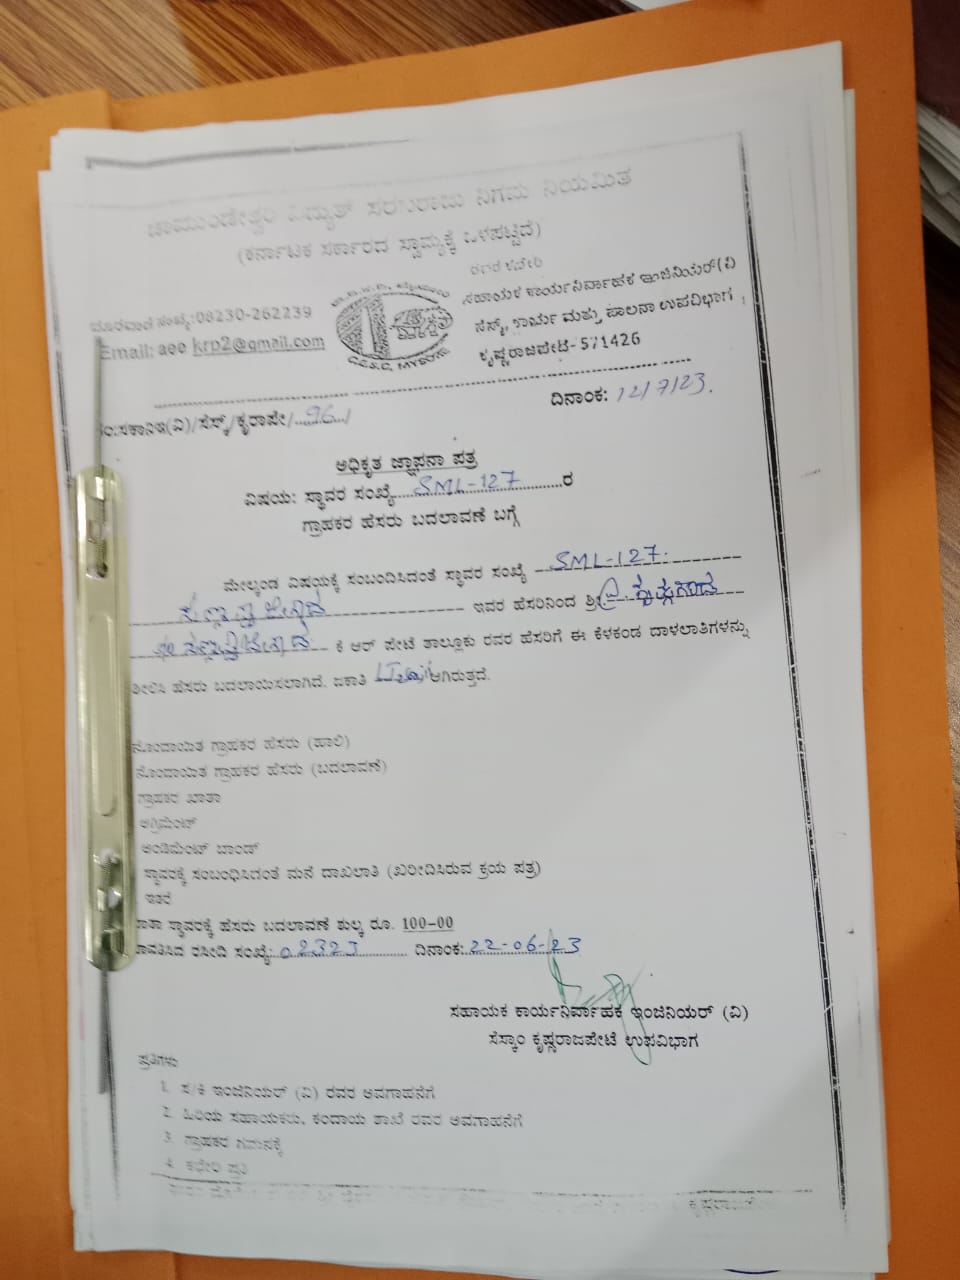 ಚಾಮುಂಡೇಶ್ವರಿ ವಿದ್ಯುತ್ ಸರಬರಾಜು ನಿಗಮ ನಿಯಮಿತ
(ಕರ್ನಾಟಕ ಸರ್ಕಾರದ ಸ್ವಾಮ್ಯಕ್ಕೆ ಒಳಪಟ್ಟಿದೆ)
ದೂರವಾಣಿ ಸಂಖ್ಯೆ:08230-262239
Email: aee krp2@gmail.com
C.E.S.C, MYSORE
ರವರ ಕಛೇರಿ
ಸಹಾಯಕ ಕಾರ್ಯನಿರ್ವಾಹಕ ಇಂಜಿನಿಯರ್(ವಿ
ಸೆಸ್ಕ್, ಕಾರ್ಯ ಮತ್ತು ಪಾಲನಾ ಉಪವಿಭಾಗ
ಕೃಷ್ಣರಾಜಪೇಟೆ-571426
ಸಕಾನಿಇ(ವಿ)/ಸೆಸ್ಕ್/ಕೃರಾಪೇ/...96.../
ದಿನಾಂಕ: 12/7/23.
ಅಧಿಕೃತ ಜ್ಞಾಪನಾ ಪತ್ರ
ವಿಷಯ: ಸ್ಥಾವರ ಸಂಖ್ಯೆ....SML-127........ರ
ಗ್ರಾಹಕರ ಹೆಸರು ಬದಲಾವಣೆ ಬಗ್ಗೆ
ಮೇಲ್ಕಂಡ ವಿಷಯಕ್ಕೆ ಸಂಬಂದಿಸಿದಂತೆ ಸ್ಥಾವರ ಸಂಖ್ಯೆ SML-127.
ಇವರ ಹೆಸರಿನಿಂದ ಶ್ರೀ
ಕೆ ಆರ್ ಪೇಟೆ ತಾಲ್ಲೂಕು ರವರ ಹೆಸರಿಗೆ ಈ ಕೆಳಕಂಡ ದಾಳಲಾತಿಗಳನ್ನು
ಹೆಸರು ಬದಲಾಯಿಸಲಾಗಿದೆ. ಜಕಾತಿ ಆಗಿರುತ್ತದೆ.
ನೊಂದಾಯಿತ ಗ್ರಾಹಕರ ಹೆಸರು (ಹಾಲಿ)
ನೊಂದಾಯಿತ ಗ್ರಾಹಕರ ಹೆಸರು (ಬದಲಾವಣೆ)
ಗ್ರಾಹಕರ ಖಾತಾ
ಅಗ್ರಿಮೆಂಟ್
ಅಂಡಿಮೆಂಟ್ ಬಾಂಡ್
ಸ್ಥಾವರಕ್ಕೆ ಸಂಬಂಧಿಸಿದಂತೆ ಮನೆ ದಾಖಲಾತಿ (ಖರೀದಿಸಿರುವ ಕ್ರಯ ಪತ್ರ)
ಇತರೆ
ಸ್ಥಾವರಕ್ಕೆ ಹೆಸರು ಬದಲಾವಣೆ ಶುಲ್ಕ ರೂ. 100-00
ರಸೀದಿ ಸಂಖ್ಯೆ: 02323 ದಿನಾಂಕ: 22-06-23
ಸಹಾಯಕ ಕಾರ್ಯನಿರ್ವಾಹಕ ಇಂಜಿನಿಯರ್ (ವಿ)
ಸೆಸ್ಕಾಂ ಕೃಷ್ಣರಾಜಪೇಟೆ ಉಪವಿಭಾಗ
ಪ್ರತಿಗಳು
1. ಸ/ಕಿ ಇಂಜಿನಿಯರ್ (ವಿ) ರವರ ಅವಗಾಹನೆಗೆ
2. ಹಿರಿಯ ಸಹಾಯಕರು, ಕಂದಾಯ ಶಾಖೆ ರವರ ಅವಗಾಹನೆಗೆ
3. ಗ್ರಾಹಕರ ಗಮನಕ್ಕೆ
4. ಕಛೇರಿ ಪ್ರತಿ